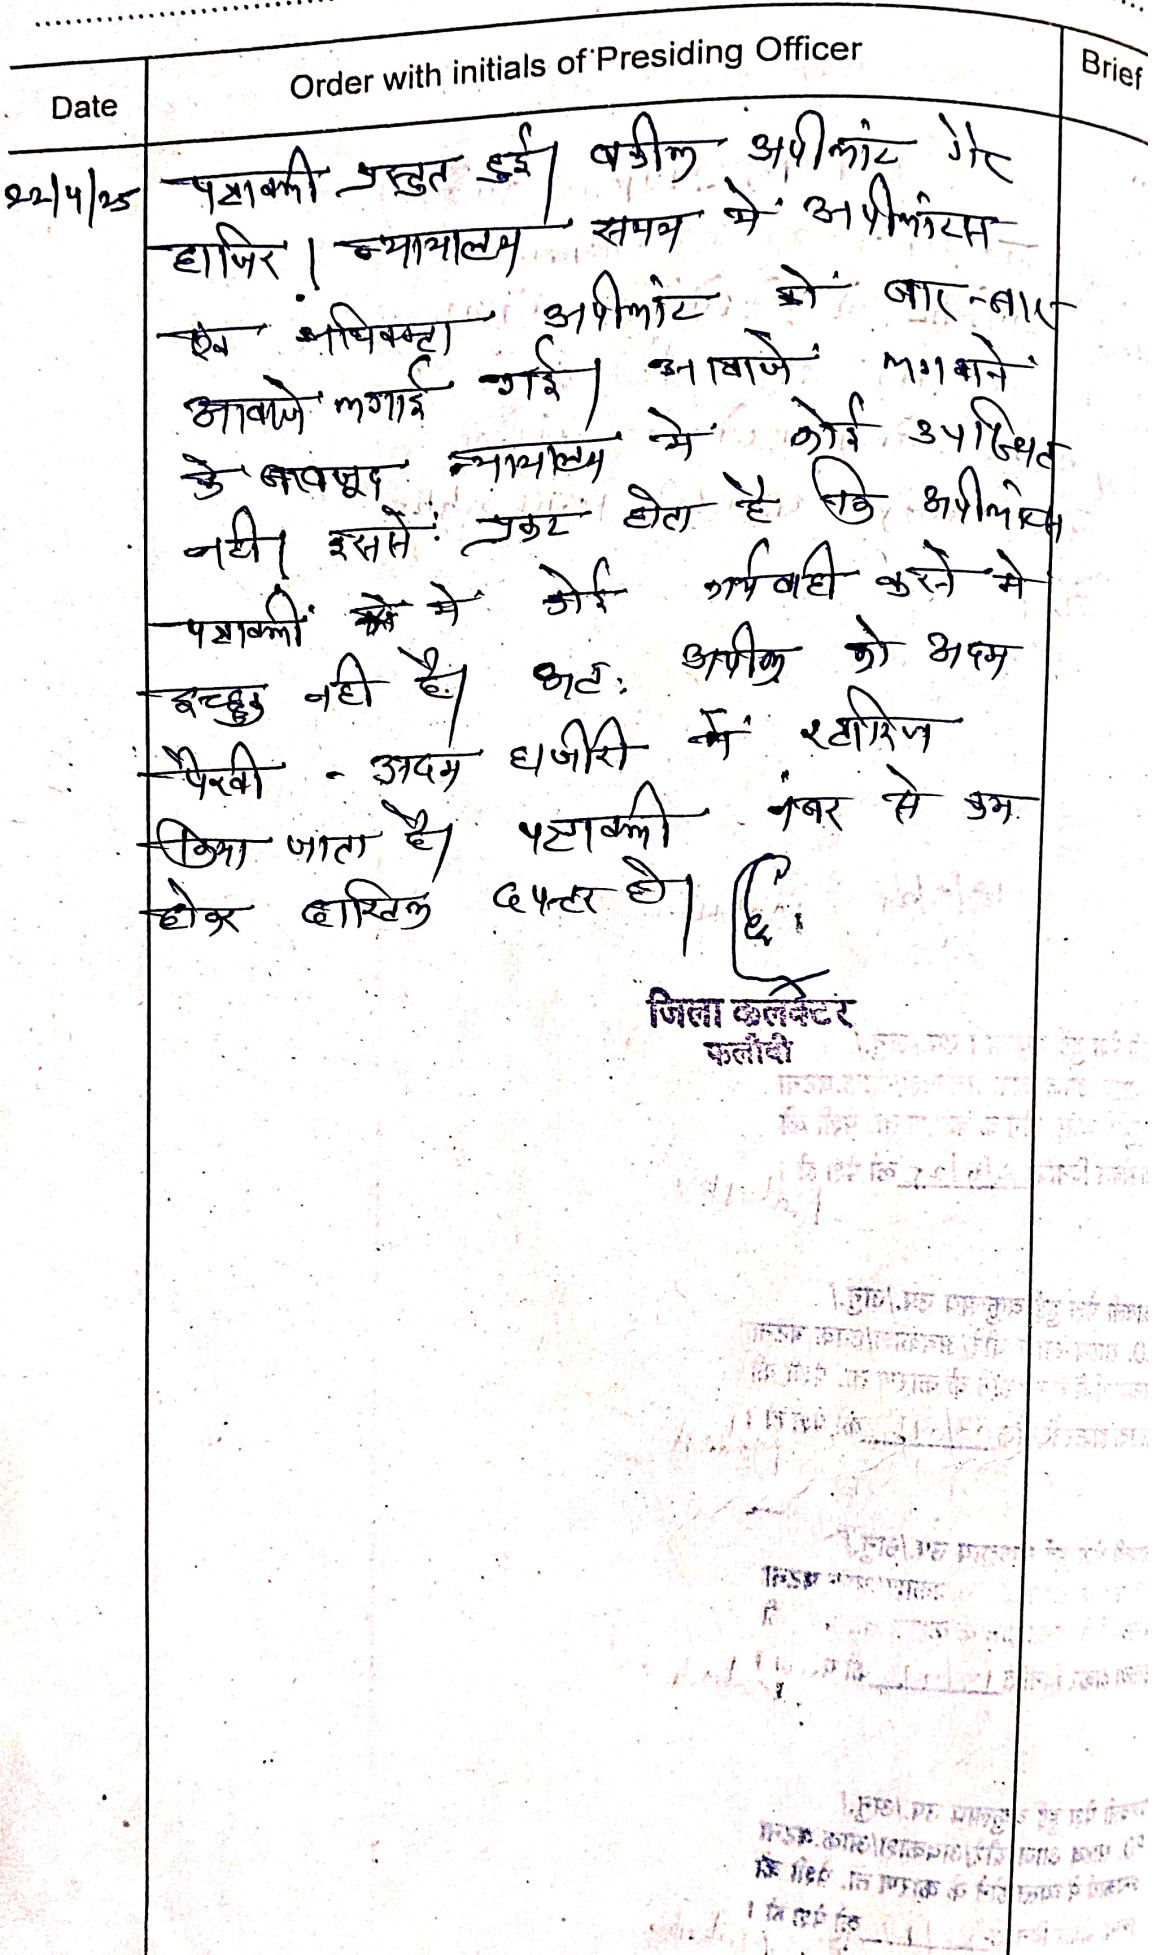 Order with initials of Presiding Officer
Brief
Date
22/4/25
पत्रावली प्रस्तुत हुई। वकील अपीलांट गैर
हाजिर। न्यायालय समय में अपीलांटस
एवं अधिवक्ता अपीलांट को बार-बार
आवाजे लगाई गई। आवाजें लगवाने
के बावजूद न्यायालय में कोई उपस्थित
नही। इससे प्रकट होता है कि अपीलांटस
पत्रावली में कोई कार्यवाही करने में
इच्छुक नही है। अतः अपील को अदम
पैरवी - अदम हाजीरी में खारिज
किया जाता है। पत्रावली नंबर से कम
होकर दाखिल दफ्तर हो।
जिला कलक्टर
फलौदी